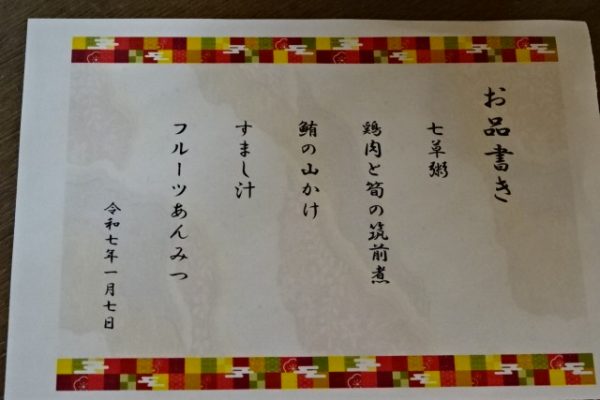 お品書き
七草粥
鶏肉と筍の筑前煮
鮪の山かけ
すまし汁
フルーツあんみつ
令和七年一月七日